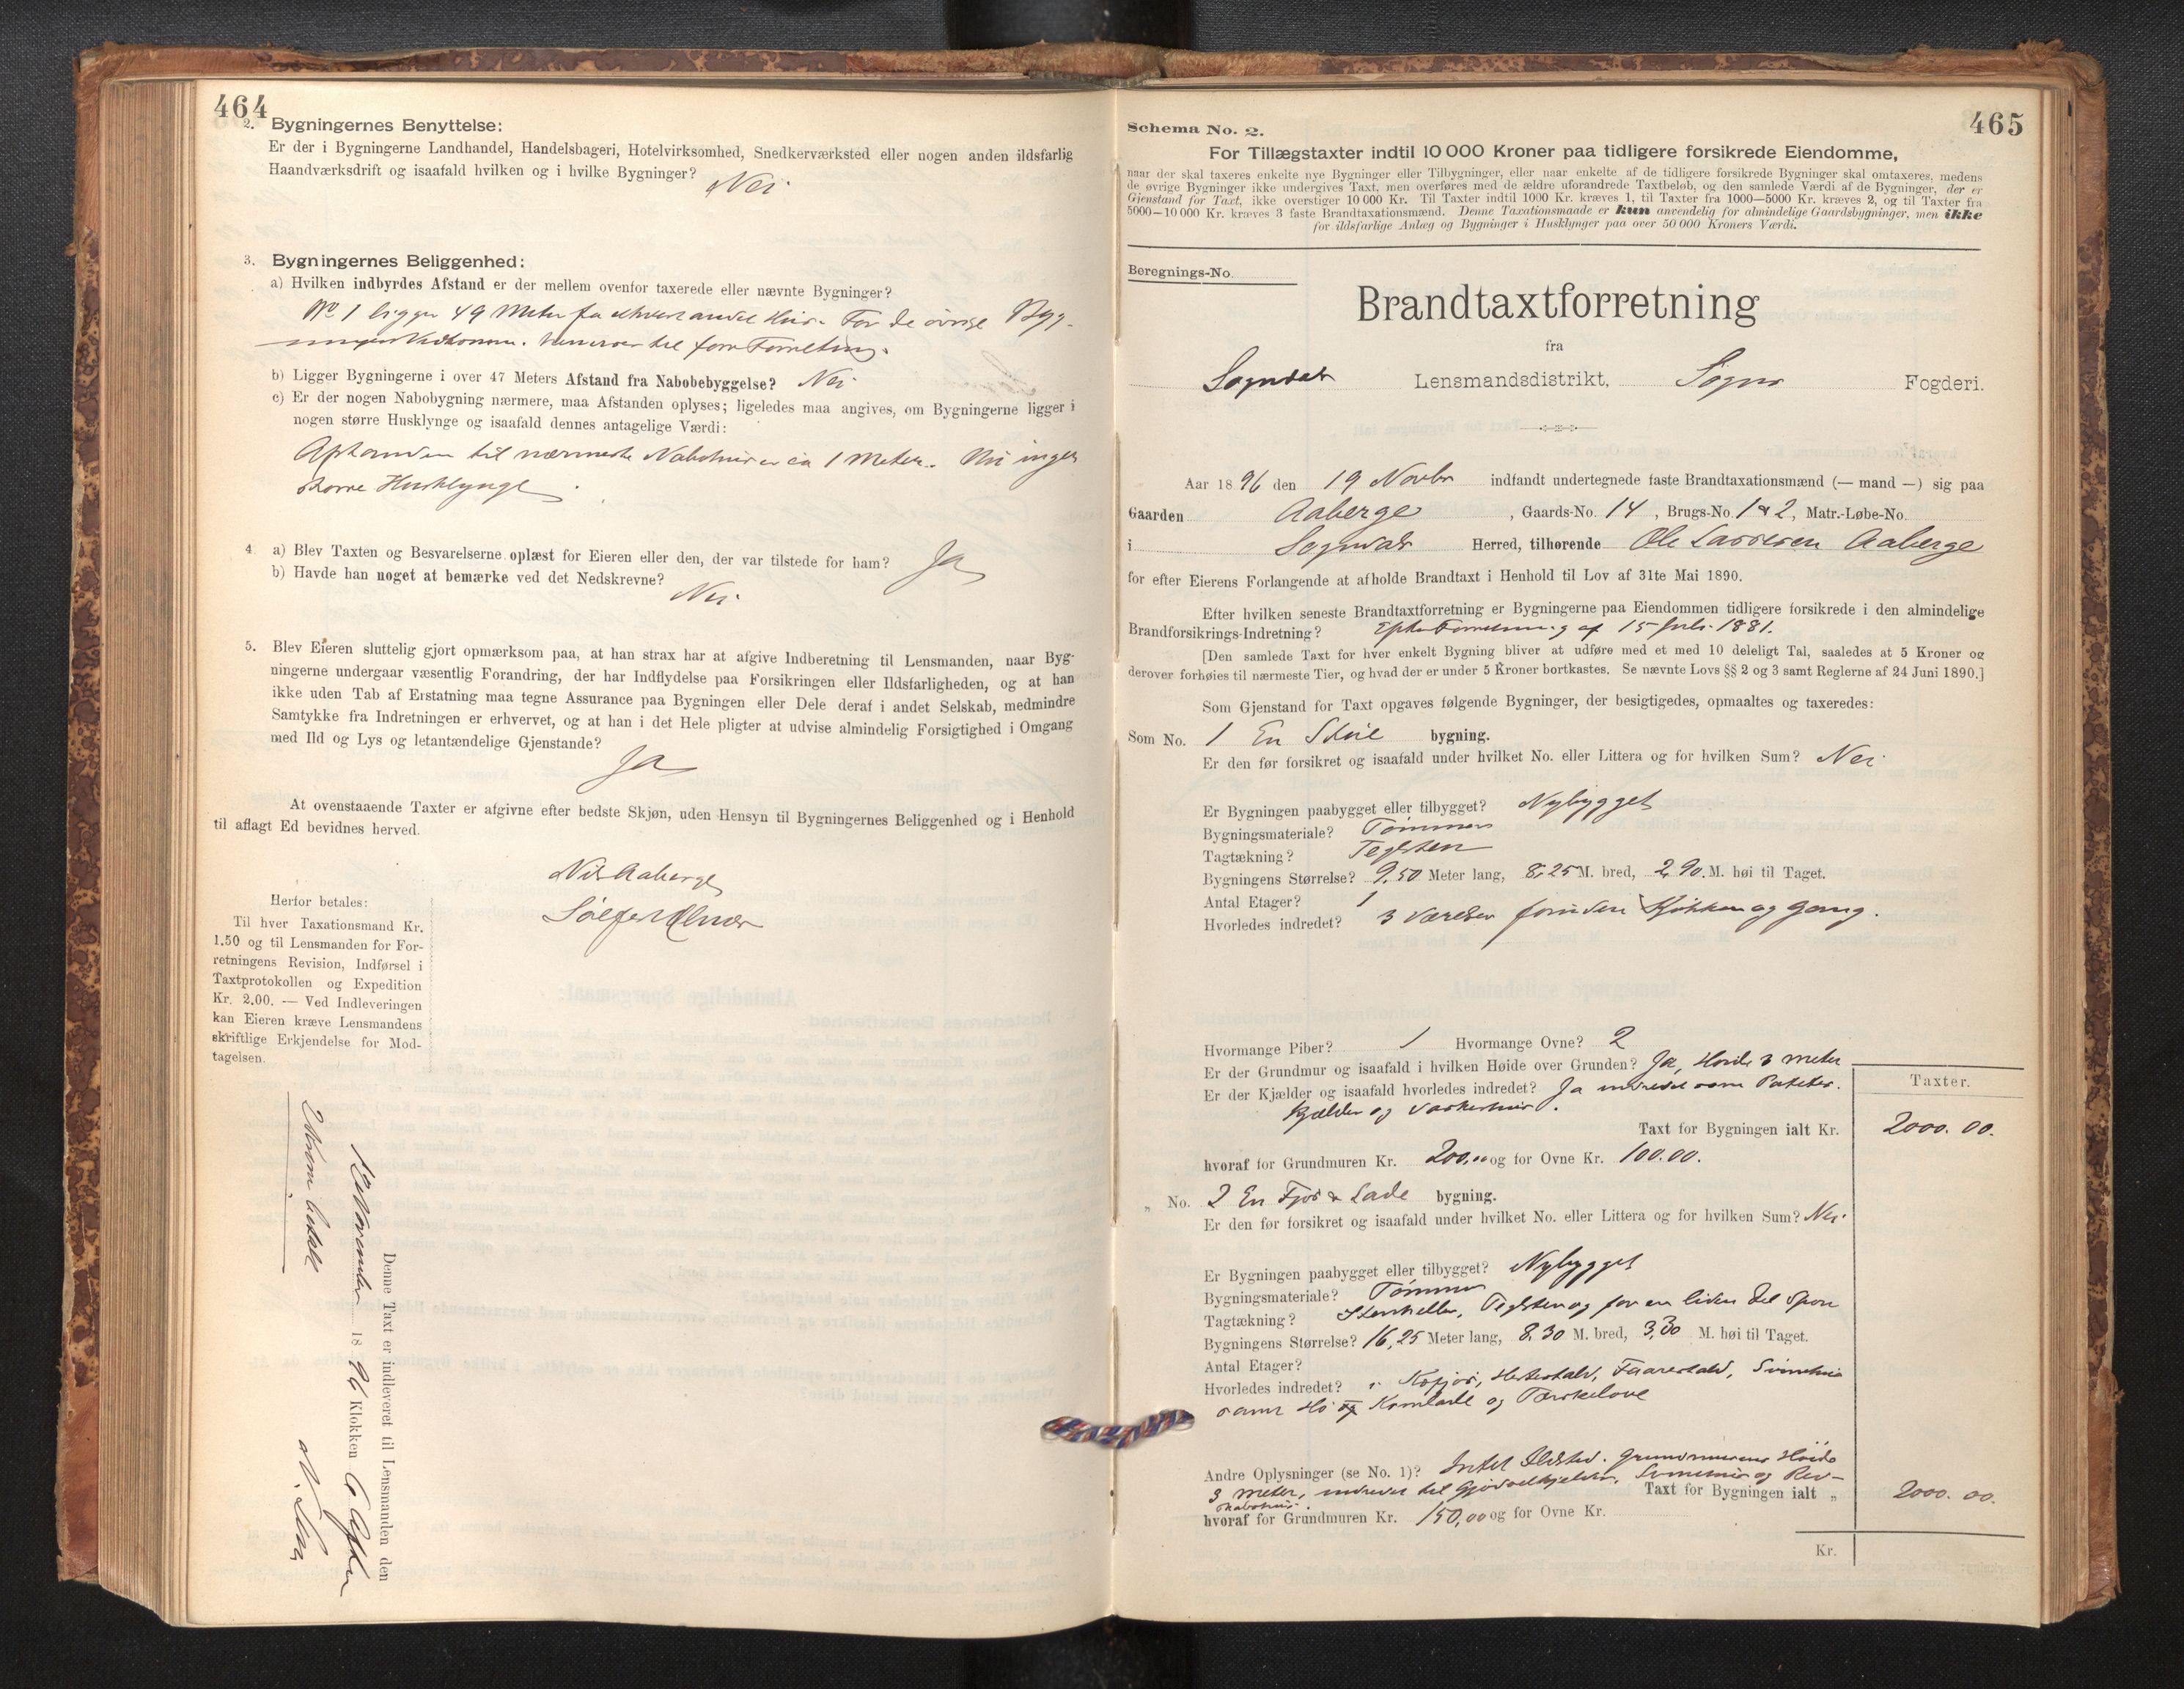 464
2. Bygningernes Benyttelse:
Er der i Bygningerne Landhandel, Handelsbageri, Hotelvirksomhed, Snedkerværksted eller nogen anden ildsfarlig
Haandværksdrift og isaafald hvilken og i hvilke Bygninger? Nei.
3. Bygningernes Beliggenhed:
a) Hvilken indbyrdes Afstand er der mellem ovenfor taxerede eller nævnte Bygninger?
No 1 ligger 49 Meter fra ethvert andet Huus. For de øvrige Byg-
ninger Vedkomm. henvises til forr Forretning.
b) Ligger Bygningerne i over 47 Meters Afstand fra Nabobebyggelse? Nei
c) Er der nogen Nabobygning nærmere, maa Afstanden oplyses; ligeledes maa angives, om Bygningerne ligger i
nogen større Husklynge og isaafald dennes antagelige Værdi:
Afstanden til nærmeste Nabohuus er ca 1 Meter. Nei ingen
større Husklynge.
4. a) Blev Taxten og Besvarelserne oplæst for Eieren eller den, der var tilstede for ham? Ja
b) Havde han noget at bemærke ved det Nedskrevne? Nei.
5. Blev Eieren sluttelig gjort opmærksom paa, at han strax har at afgive Indberetning til Lensmanden, naar Byg-
ningerne undergaar væsentlig Forandring, der har Indflydelse paa Forsikringen eller Ildsfarligheden, og at han
ikke uden Tab af Erstatning maa tegne Assurance paa Bygningen eller Dele deraf i andet Selskab, medmindre
Samtykke fra Indretningen er erhvervet, og at han i det Hele pligter at udvise almindelig Forsigtighed i Omgang
med Ild og Lys og letantændelige Gjenstande?
Ja
At ovenstaaende Taxter er afgivne efter bedste Skjøn, uden Hensyn til Bygningernes Beliggenhed og i Henhold
til aflagt Ed bevidnes herved.
Nils Aaberge
Herfor betales:
Til hver Taxationsmand Kr.
1.50 og til Lensmanden for For-
retningens Revision, Indførsel i
Taxtprotokollen og Expedition
Kr. 2.00. — Ved Indleveringen
kan Eieren kræve Lensmandens
skriftlige Erkjendelse for Mod-
tagelsen.
Denne Taxt er indleveret til Lensmanden den
November 1896 Klokken 6 Efter
2 Kroner betalt
465
Schema No. 2.
For Tillægstaxter indtil 10 000 Kroner paa tidligere forsikrede Eiendomme,
naar der skal taxeres enkelte nye Bygninger eller Tilbygninger, eller naar enkelte af de tidligere forsikrede Bygninger skal omtaxeres, medens
de øvrige Bygninger ikke undergives Taxt, men overføres med de ældre uforandrede Taxtbeløb, og den samlede Værdi af de Bygninger, der er
Gjenstand for Taxt, ikke overstiger 10 000 Kr. Til Taxter indtil 1000 Kr. kræves 1, til Taxter fra 1000—5000 Kr. kræves 2, og til Taxter fra
5000—10 000 Kr. kræves 3 faste Brandtaxationsmænd. Denne Taxationsmaade er kun anvendelig for almindelige Gaardsbygninger, men ikke
for ildsfarlige Anlæg og Bygninger i Husklynger paa over 50 000 Kroners Værdi.
Beregnings-No.
Brandtaxtforretning
fra
Sogndal Lensmandsdistrikt, Sogns Fogderi.
Aar 1896 den 19 Novbr indfandt undertegnede faste Brandtaxationsmænd (— mand —) sig paa
Gaarden Aaberge, Gaards-No. 14, Brugs-No. 1 & 2, Matr.-Løbe-No.
i Sogndal Herred, tilhørende Ole Larsesen Aaberge
for efter Eierens Forlangende at afholde Brandtaxt i Henhold til Lov af 31te Mai 1890.
Efter hvilken seneste Brandtaxtforretning er Bygningerne paa Eiendommen tidligere forsikrede i den almindelige
Brandforsikrings-Indretning? Efter Forretning af 15 Juli 1881.
[Den samlede Taxt for hver enkelt Bygning bliver at udføre med et med 10 deleligt Tal, saaledes at 5 Kroner og
derover forhøies til nærmeste Tier, og hvad der er under 5 Kroner bortkastes. Se nævnte Lovs §§ 2 og 3 samt Reglerne af 24 Juni 1890.]
Som Gjenstand for Taxt opgaves følgende Bygninger, der besigtigedes, opmaaltes og taxeredes:
Som No. 1 En Stue bygning.
Er den før forsikret og isaafald under hvilket No. eller Littera og for hvilken Sum? Nei
Er Bygningen paabygget eller tilbygget? Nybygget
Bygningsmateriale? Tømmer
Tagtækning? Teglsten
Bygningens Størrelse? 9,50 Meter lang, 8,25 M. bred, 2,90. M. høi til Taget.
Antal Etager? 1
Hvorledes indredet? 3 Værelser foruden Kjøkken og Gang.
Hvormange Piber? 1 Hvormange Ovne? 2
Er der Grundmur og isaafald i hvilken Høide over Grunden? Ja, Høide 2 Meter
Er der Kjælder og isaafald hvorledes indredet? Ja indredet som Potetes.
kjælder og Vaskerhuus.
Taxter.
Taxt for Bygningen ialt Kr. 2000.00.
hvoraf for Grundmuren Kr. 200,00 og for Ovne Kr. 100.00.
„ No. 2 En Fjøs & Lade bygning.
Er den før forsikret og isaafald under hvilket No. eller Littera og for hvilken Sum? Nei.
Er Bygningen paabygget eller tilbygget? Nybygget
Bygningsmateriale? Tømmer
Tagtækning? Stenheller, Teglsten og for en liden Del Spon
Bygningens Størrelse? 16,25 Meter lang, 8.30 M. bred, 3,30 M. høi til Taget.
Antal Etager?
Hvorledes indredet? Kofjøs, Hestestald, Faarestald, Svinehus
samt Hø og Kornlade og Tærskelove
Andre Oplysninger (se No. 1)? Intet Ildsted. Grundmurens Høide
3 Meter, indredet til Gjødselkjelder, Svinehus og Red-
skabshus.
Taxt for Bygningen ialt „ 2000.00.
hvoraf for Grundmuren Kr. 150,00 og for Ovne Kr.
Kr.